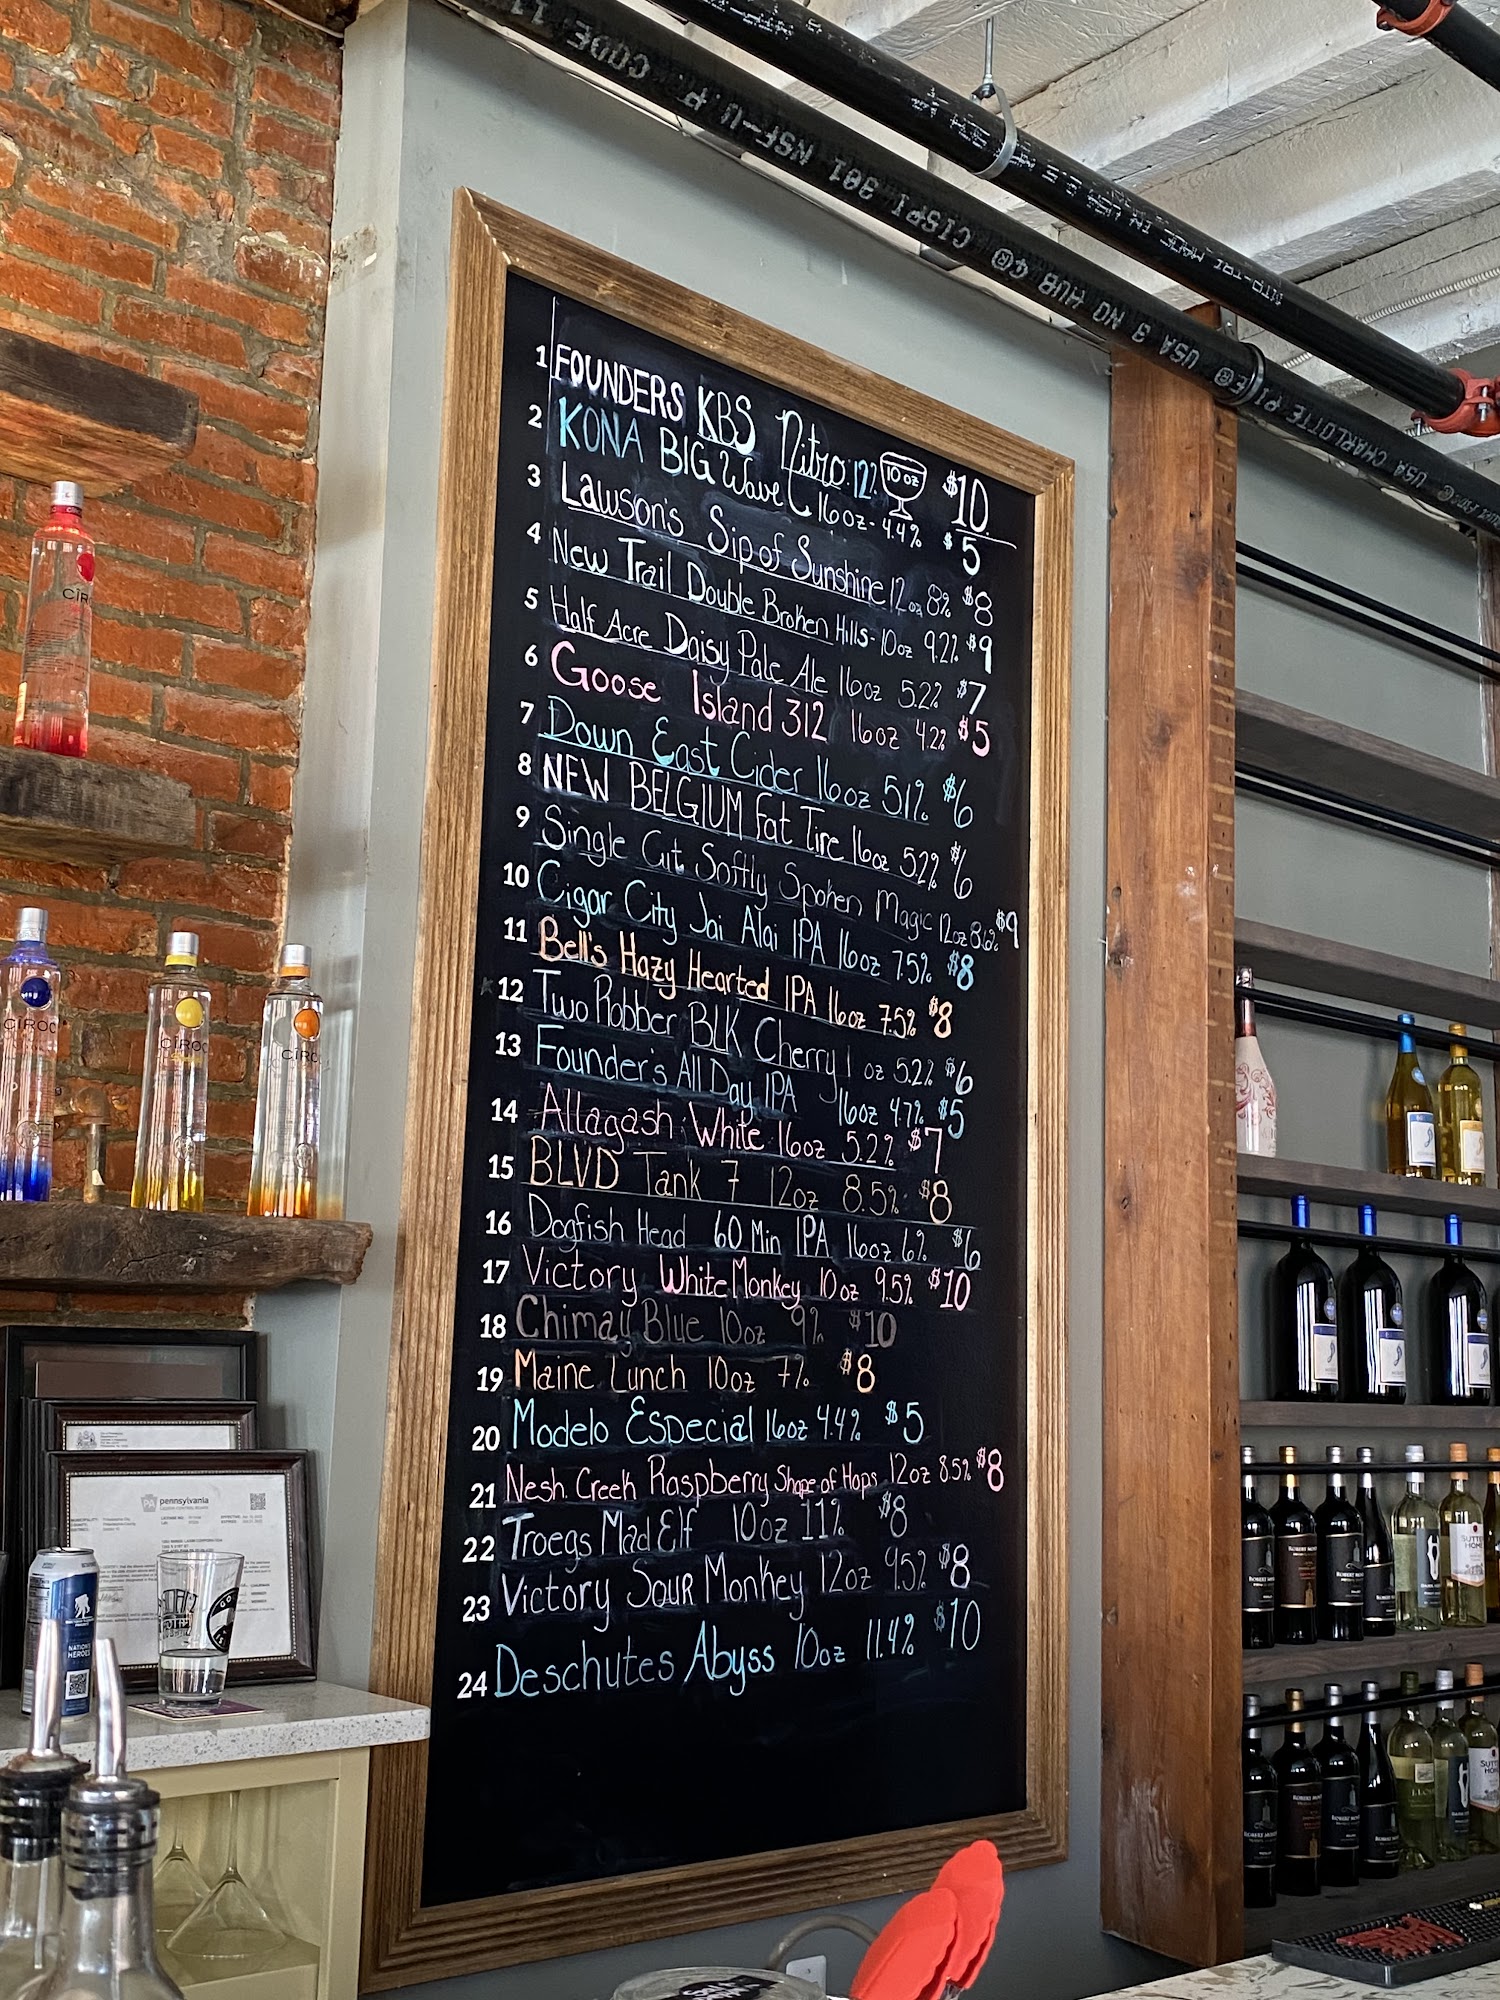 1 FOUNDERS KBS Nitro 12% 10 oz $10
2 KONA BIG Wave 16oz - 4.4% $5
3 Lawson's Sip of Sunshine 12oz 8% $8
4 New Trail Double Broken Hills - 10oz 9.2% $9
5 Half Acre Daisy Pale Ale 16oz 5.2% $7
6 Goose Island 312 16oz 4.2% $5
7 Down East Cider 16oz 5.1% $6
8 NEW BELGIUM Fat Tire 16oz 5.2% $6
9 Single Cut Softly Spoken Magic 12oz 8.6% $9
10 Cigar City Jai Alai IPA 16oz 7.5% $8
11 Bell's Hazy Hearted IPA 16oz 7.5% $8
12 Two Robber BLK Cherry 1 oz 5.2% $6
13 Founder's All Day IPA 16oz 4.7% $5
14 Allagash White 16oz 5.2% $7
15 BLVD Tank 7 12oz 8.5% $8
16 Dogfish Head 60 Min IPA 16oz 6% $6
17 Victory White Monkey 10oz 9.5% $10
18 Chimay Blue 10oz 9% $10
19 Maine Lunch 10oz 7% $8
20 Modelo Especial 16oz 4.4% $5
21 Nesh. Creek Raspberry Shape of Hops 12oz 8.5% $8
22 Troegs Mad Elf 10oz 11% $8
23 Victory Sour Monkey 12oz 9.5% $8
24 Deschutes Abyss 10oz 11.4% $10
CODE 11 NSF-U.P. CISPI 301 NO HUB USA 3 CHARLOTTE PIPE
USA CHARLOTTE
CÎR
CÎROC
CÎROC
CÎROC
PA pennsylvania
NATION'S
HEROES
ROBERT MONDAVI
SUTTER
HOME